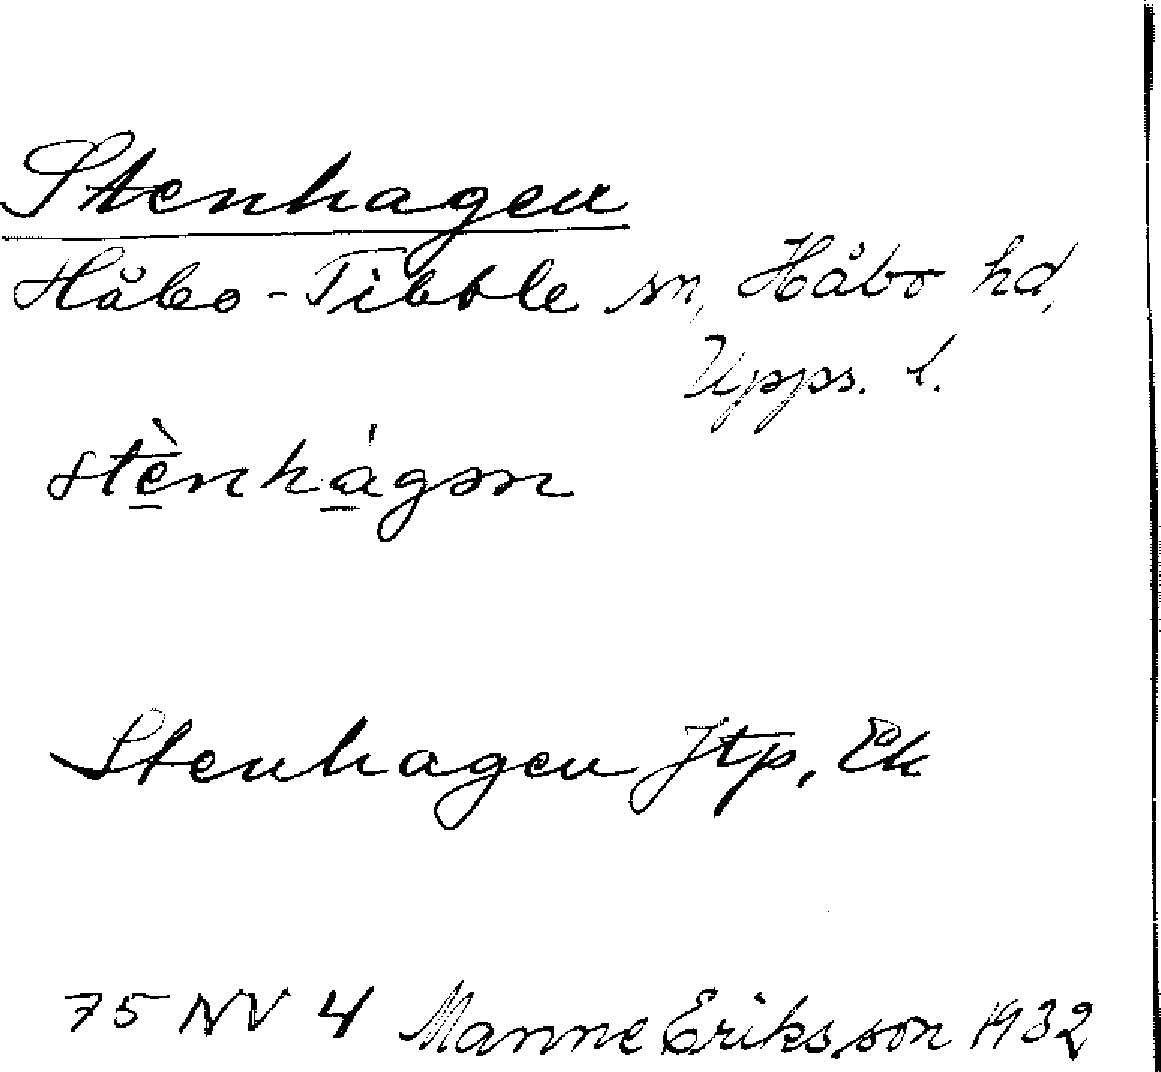 Stenhagen
Håbo-Tibble sn, Håbo hd,
Upps. l.
stènhágən
Stenhagen Jtp, Ek
75 NV 4 Manne Eriksson 1932